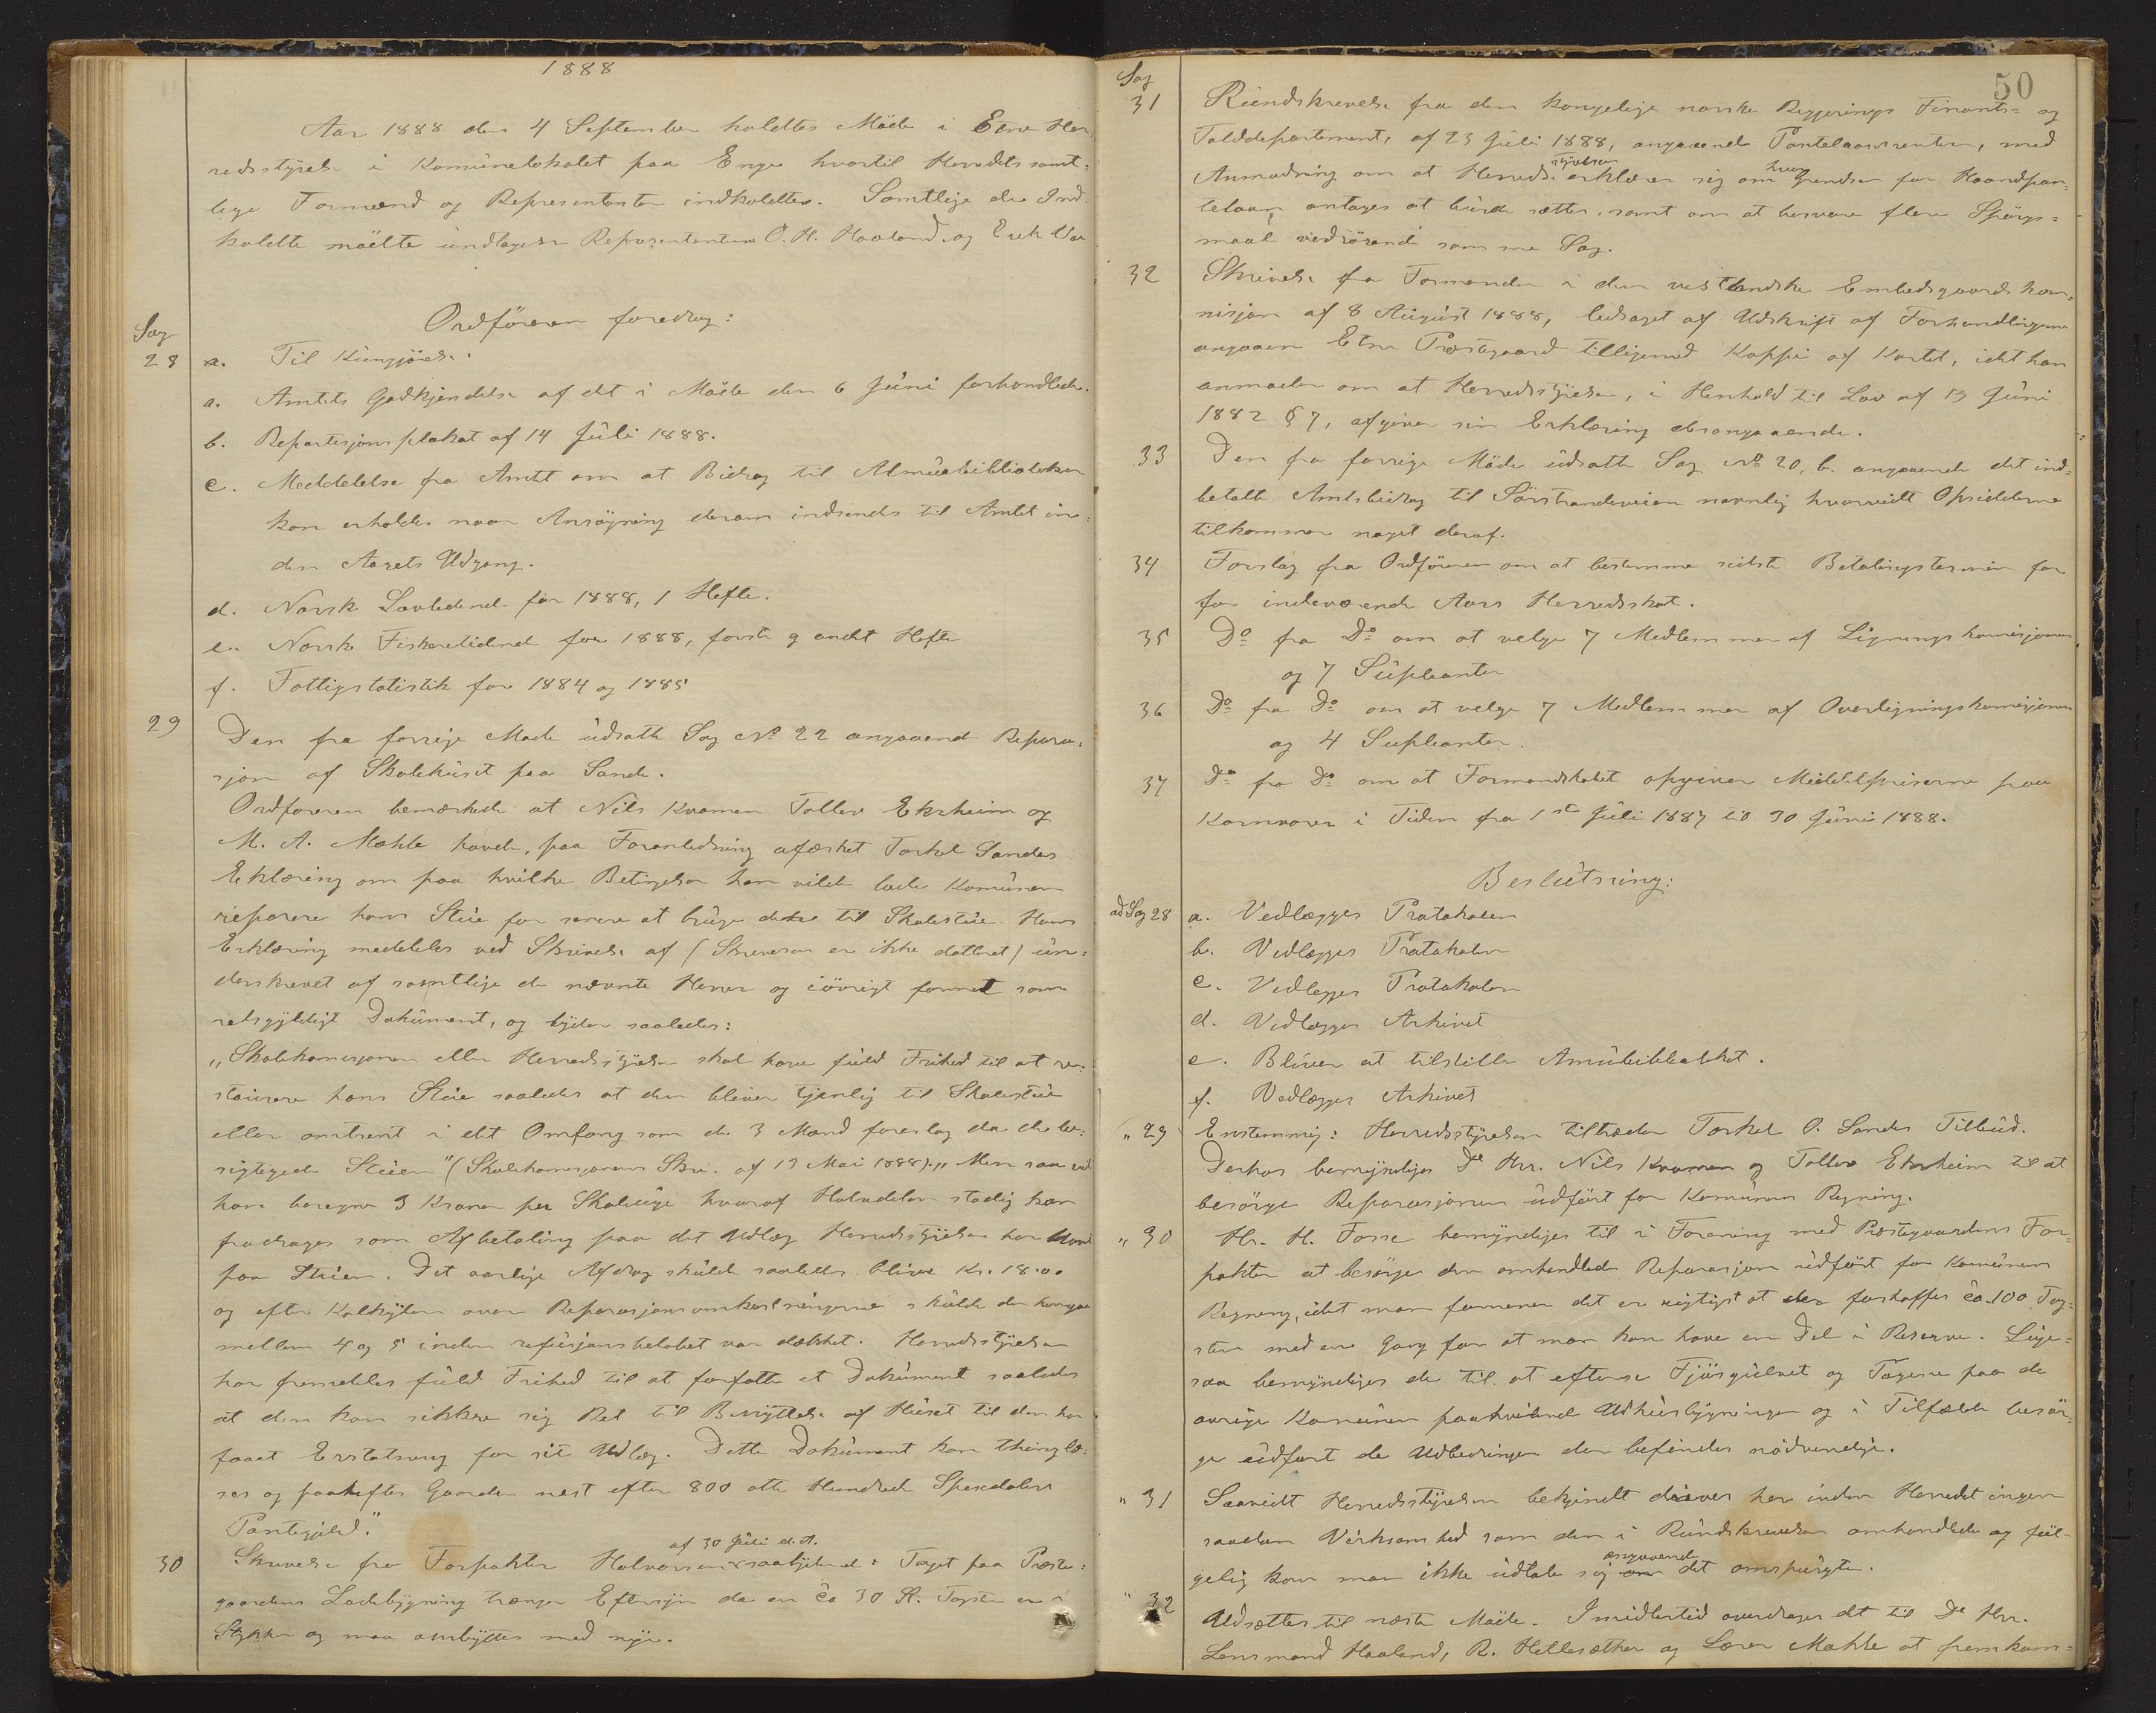 1888
Aar 1888 den 4 September holdtes Möde i Etne Her-
redsstyrelse i Komünelokalet paa Enge hvortil Herredets samt-
lige Formænd og Representanter indkaldtes. Samtlige de Ind-
kaldte mödte ündtagen Representanterne O. H. Haaland og Erik Vae
Ordföreren foredrog:
Sag
28 a. Til Küngjörelse.
a. Amtets Godkjendelse af det i Möde den 6 Jüni forhandlede.
b. Repartisjons plakat af 14 Jüli 1888.
c. Meddelelse fra Amtet om at Bidrag til Almüebiblioteker
kan erholdes naar Ansögning derom indsendes til Amtet in-
den Aarets Udgang.
d. Norsk Lovtidend for 1888, 1 Hefte.
e. Norsk Fiskeritidend for 1888, forste og andet Hefte
f. Fattigstatistik for 1884 og 1885
29 Den fra forrige Möde üdsatte Sag No 22 angaaende Repara-
sjon af Skolehüset paa Sande.
Ordföreren bemærkede at Nils Kvamen Tollev Ekrheim og
M. A. Mæhle havde, paa Foranledning afæsket Torkel Sandes
Erklæring om paa hvilke Betingelser han vilde lade Komünen
reparere hans Stüe for senere at brüge dette til Skolestüe. Hans
Erklæring meddeles ved Skrivelse af (Skrivelsen er ikke datteret) ün-
derskrevet af samtlige de nævnte Herrer og iövrigt formet som
retsgyldigt Doküment, og lyder saaledes:
"Skolekomisjonen eller Herredsstyrelsen skal have füld Frihed til at re-
staürere hans Stüe saaledes at den bliver tjenlig til Skolestüe
eller omtrent i det Omfang som de 3 Mænd foreslog da de be-
sigtigede Stüen" (Skolekomisjonens Skr. af 19 Mai 1888). "Men saa vil
han beregne 3 Kroner per Skoleüge hvoraf Halvdelen stadig kan
fradrages som Afbetaling paa det Udlæg Herredsstyrelsen har havt
paa Stüen. Det aarlige Afdrag skülde saaledes blive Kr. 18.00
og efter Kalkylen over Reparasjonsomkostningerne skülde der hengaa
mellem 4 og 5 inden refüsjonsbelöbet var dækket. Herredsstyrelsen
har fremdeles füld Frihed til at forfatte et Doküment saaledes
at den kan sikkre sig Ret til Benyttelse af Hüset til den har
faaet Erstatning for sit Udlæg. Dette Doküment kan thinglæ-
ses og paahefter Gaarden nest efter 800 otte Hundrede Spesidalers
Pantegjæld."
30 Skrivelse fra Forpakter Halvorsen af 30 Jüli d. A. saalydende: Taget paa Præste-
gaardens Ladebygning trænger Eftersyn da en ca 30 St. Tagsten er i
Stykker og maa ombyttes med nye.
50
Sag
31 Ründskrivelse fra den kongelige norske Regjerings Finants- og
Tolddepartement, af 23 Jüli 1888, angaaende Pantelaanrenten, med
Anmodning om at Herredsstyrelsen erklærer sig om hvor Grendsen for Haandpan-
telaan, antages at bürde sættes, samt om at besvare flere Spörgs-
maal vedrörende samme Sag.
32 Skrivelse fra Formanden i den vestlandske Embedsgaards kom-
misjon af 8 Aügüst 1888, ledsaget af Udskrift af Forhandlingerne
angaaen Etne Præstegaard tilligemed Koppi af Kartet, idet han
anmoder om at Herredsstyrelsen, i Henhold til Lov af 13 Jüni
1882 § 7, afgiver sin Erklæring desangaaende.
33 Den fra forrige Möde üdsatte Sag No 20, b. angaaende det ind-
betalte Amtsbidrag til Sörstrandeveien navnlig hvorvidt Opsidderne
tilkommer noget deraf.
34 Forslag fra Ordföreren om at bestemme sidste Betalingstermin for
for indeværende Aars Herredsskat.
35 Do fra Do om at velge 7 Medlemmer af Ligningskomisjonen
og 7 Süpleanter
36 Do fra Do om at velge 7 Medlemmer af Overligningskomisjonen
og 4 Supleanter.
37 Do fra Do om at Formandskabet opgiver Middelpriserne paa
Kornvarer i Tiden fra 1ste Jüli 1887 til 30 Jüni 1888.
Beslütning:
ad Sag 28 a. Vedlægges Protokolen
b. Vedlægges Protokolen
c. Vedlegges Protokolen
d. Vedlægges Arkivet
e. Bliver at tilstille Amübibliotket.
f. Vedlægges Arkivet
" 29 Enstemmig: Herredsstyrelsen tiltræder Torkel O. Sandes Tilbüd.
Derhos bemyndiges De Hrr. Nils Kvamen og Tollev Ekrheim til at
besörge Reparasjonen üdfört for Komünens Regning.
" 30 Hr. H. Fosse bemyndiges til i Forening med Præstegaardens For-
pakter at besörge den omhandlede Reparasjon üdfört for Komünens
Regning, idet man formener det er rigtigst at der forskaffes ca. 100 Tag-
sten med en Gang for at man kan have en Del i Reserve. Lige-
saa bemyndiges de til at efterse Fjösgülvet og Tagene paa de
ovrige Komünen paahvilende Udhüsbygninger og i Tilfælde besör-
ge üdfört de Udbedringer der befindes nödvendige.
" 31 Saavidt Herredsstyrelsen bekjendt drives her inden Herredet ingen
saadan Virksomhed som den i Ründskrivelsen omhandlede og föl-
gelig kan man ikke üdtale sig angaaende det omspürgte.
" 32 Udsættes til næste Möde. Imidlertid overdrages det til De Hrr.
Lensmand Haaland, R. Hellesæther og Lærer Mæhle at fremkom-